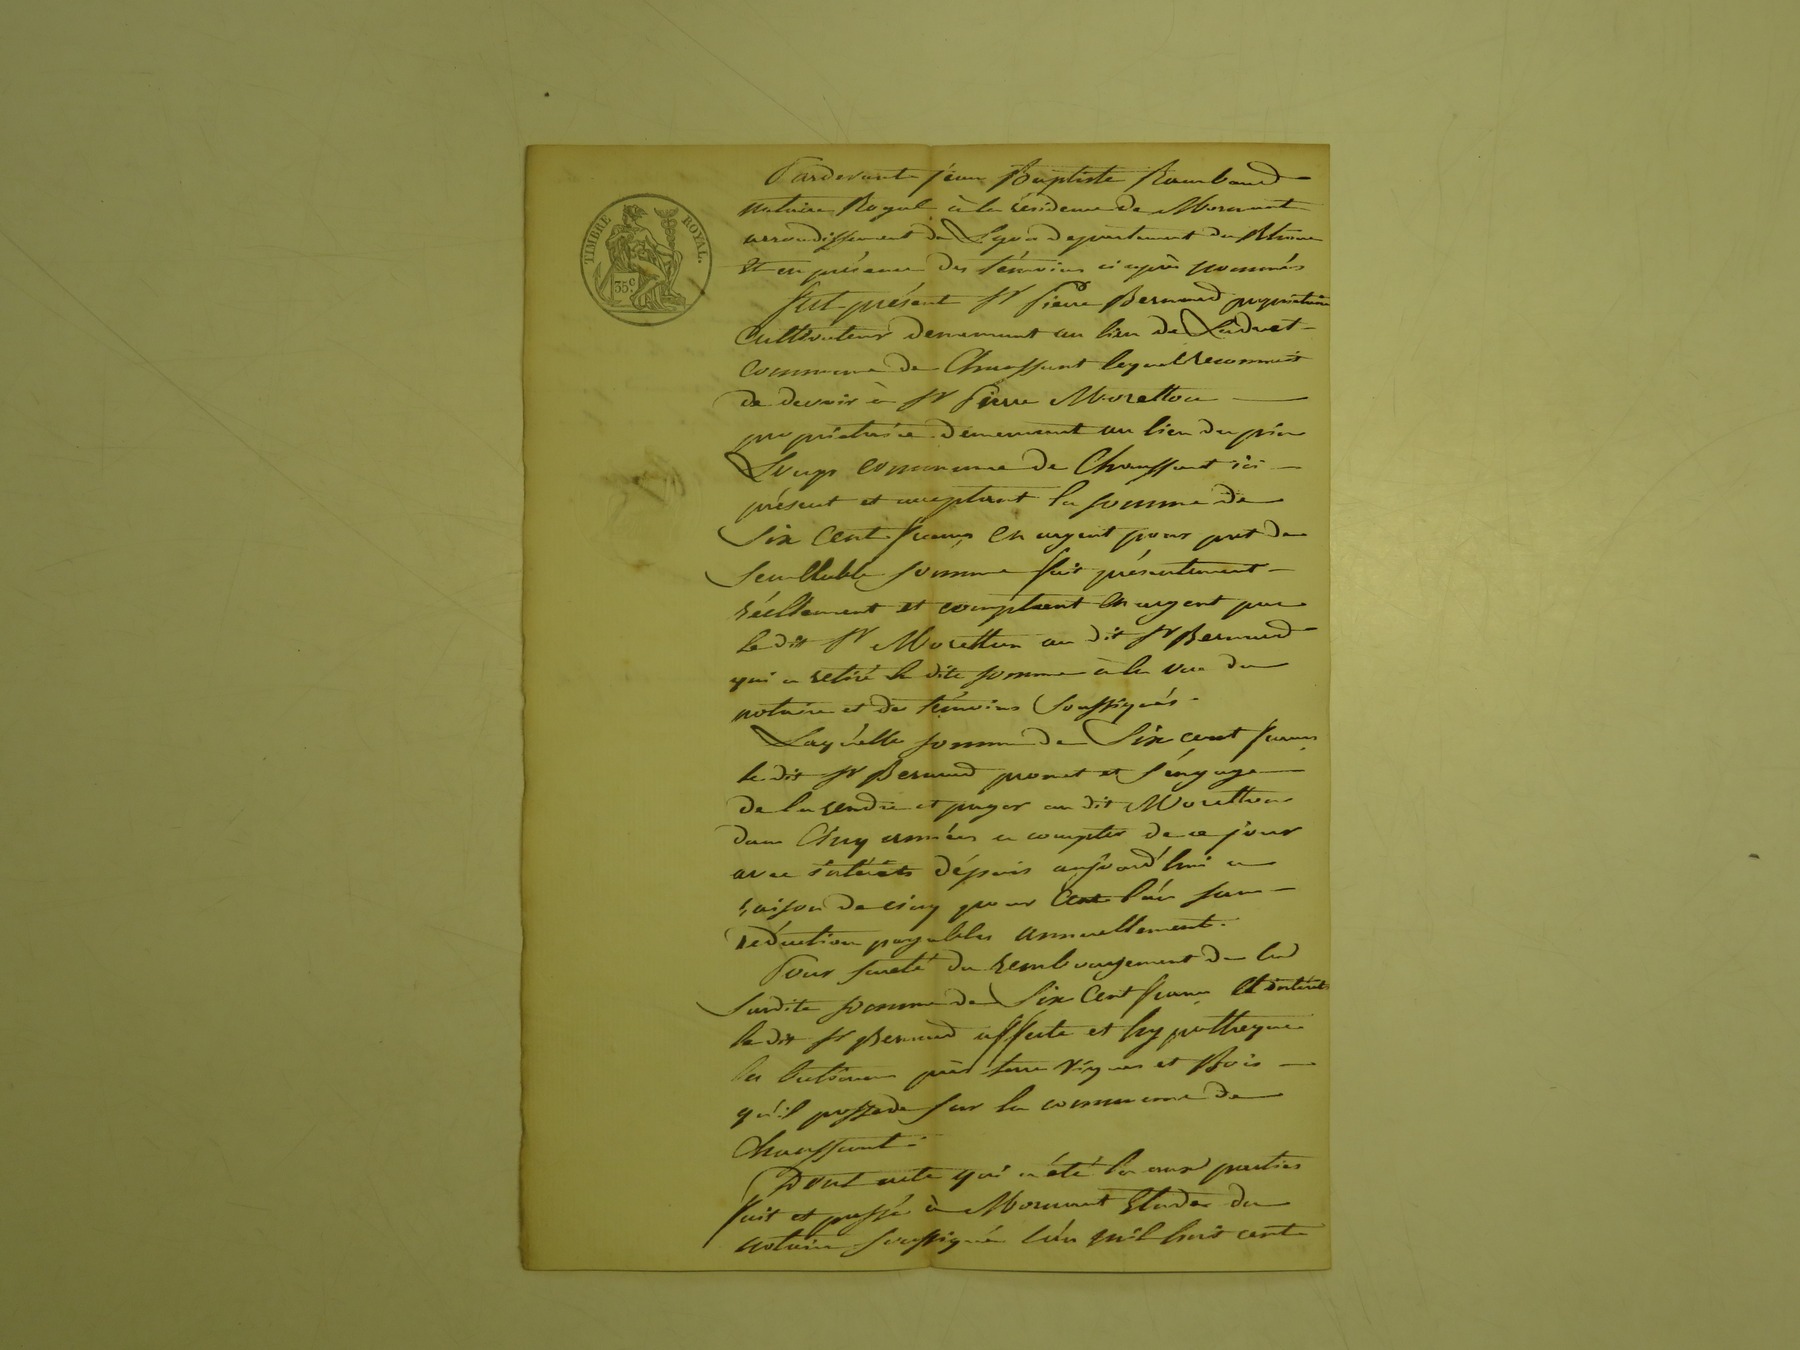 TIMBRE ROYAL.
35c.
Pardevant jean Baptiste Rambaud
notaire Royal à la résidence de Mornant
arrondissement de Lyon departement du Rhône
Et en présence des témoins ci après nommés
fut présent Sr Pierre Bernard propriétaire
Cultivateur demeurant au lieu de
commune de Chaussant lequel reconnait
de devoir à Sr Pierre Moretton
propriétaire demeurant au lieu du pin
Loup commune de Chaussant ici
présent et acceptant la somme de
Six Cent francs en argent pour pret de
semblable somme fait présentement
réellement et comptant en argent par
le dit Sr Moretton au dit Sr Bernard
qui a retiré la dite somme à la vue du
notaire et des témoins soussignés.
Laquelle somme de Six cent francs
le dit Sr Bernard promet et s'engage
de la rendre et payer au dit Moretton
dans Cinq années a compter de ce jour
avec intérêts dépuis aujourd'hui a
raison de cinq pour Cent l'an sans
réduction payables annuellement.
Pour sureté du remboursement de la
susdite somme de Six Cent francs Et intérêts
le dit Sr Bernard affecte et hypothèque
les batimens prés terre vignes et Bois
qu'il possede sur la commune de
Chaussant.
Dont acte qui a été lu aux parties
fait et passé à Mornant Etude du
notaire soussigné l'an mil huit cent